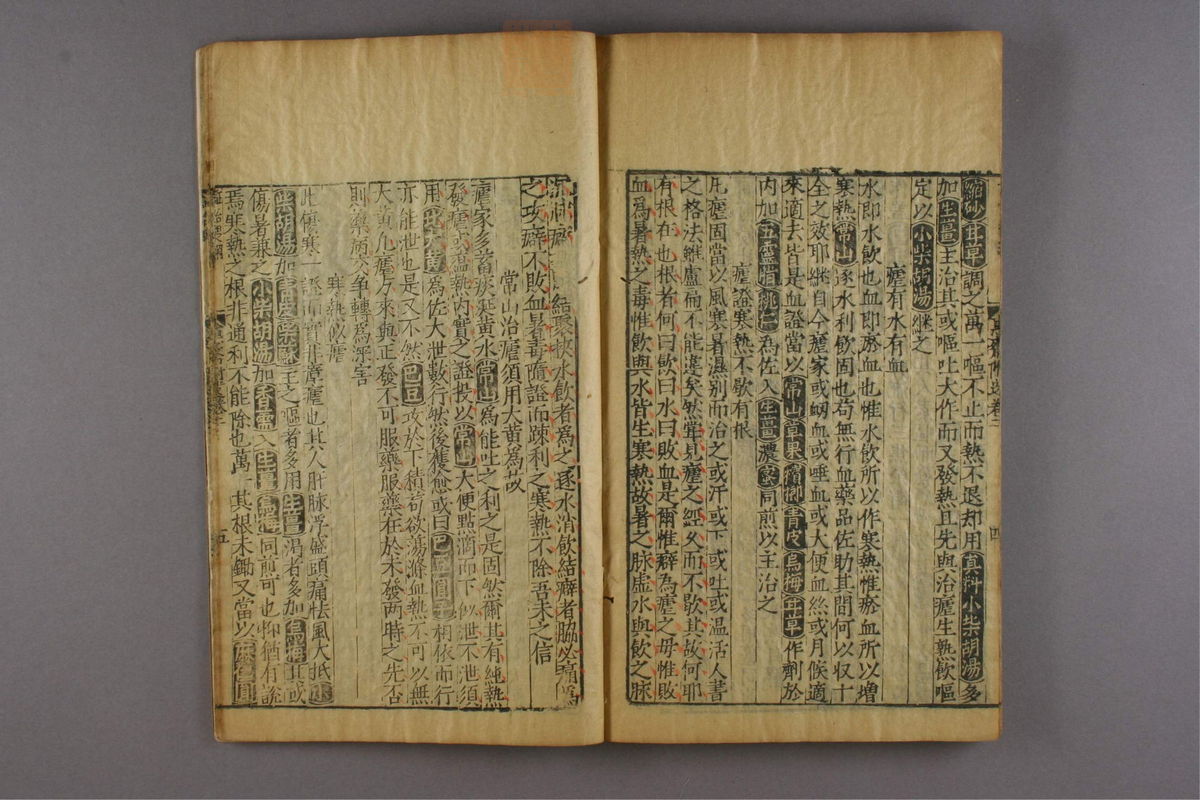 縮砂甘草調之萬一嘔不止而熱不退却用真料小柴胡湯多
加生薑主治其或嘔吐大作而又發熱且先與治瘧生熟飲嘔
定以小柴胡湯繼之
瘧有水有血
水即水飲也血即瘀血也惟水飲所以作寒熱惟瘀血所以增
寒熱常山逐水利飲固也苟無行血藥品佐助其間何以收十
全之效耶繼自今瘧家或衂血或唾血或大便血絲或月候適
來適去皆是血證當以常山草果檳榔青皮烏梅甘草作劑於
內加五靈脂桃仁為佐入生薑濃蜜同煎以主治之
瘧證寒熱不歇有根
凡瘧固當以風寒暑濕別而治之或汗或下或吐或温活人書
之格法雖盧扁不能違矣然嘗見瘧之經久而不歇其故何耶
有根在也根者何曰飲曰水曰敗血是爾惟癖為瘧之母惟敗
血為暑熱之毒惟飲與水皆生寒熱故暑之脉虛水與飲之脉
結聚挾水飲者為之逐水消飲結癖者脇必痛為
之攻癖不敗血暑毒隨證而踈利之寒熱不除吾未之信
常山治瘧須用大黃為故
瘧家多蓄痰涎黃水常山為能吐之利之是固然爾其有純熱
發瘧或温熱內實之證投以常山大便點滴而下似泄不泄須
用大黃為佐大泄數行然後獲愈或曰巴豆圓子相依而行
亦能泄也是又不然巴豆攻於下積苟欲蕩滌血熱不可以無
大黃凡瘧方來與正發不可服藥服藥在於未發两時之先否
則藥病交爭轉為深害
寒熱似瘧
此傷寒證而實非瘴瘧也其人肝脉浮盛頭痛怯風大抵
柴胡湯加主之嘔者多用生薑渴者多加烏梅其或
傷暑兼之小柴胡湯加香薷入生薑烏梅同煎可也抑猶有說
焉寒熱之根非通利不能除也萬一其根未鋤又當以
四
五